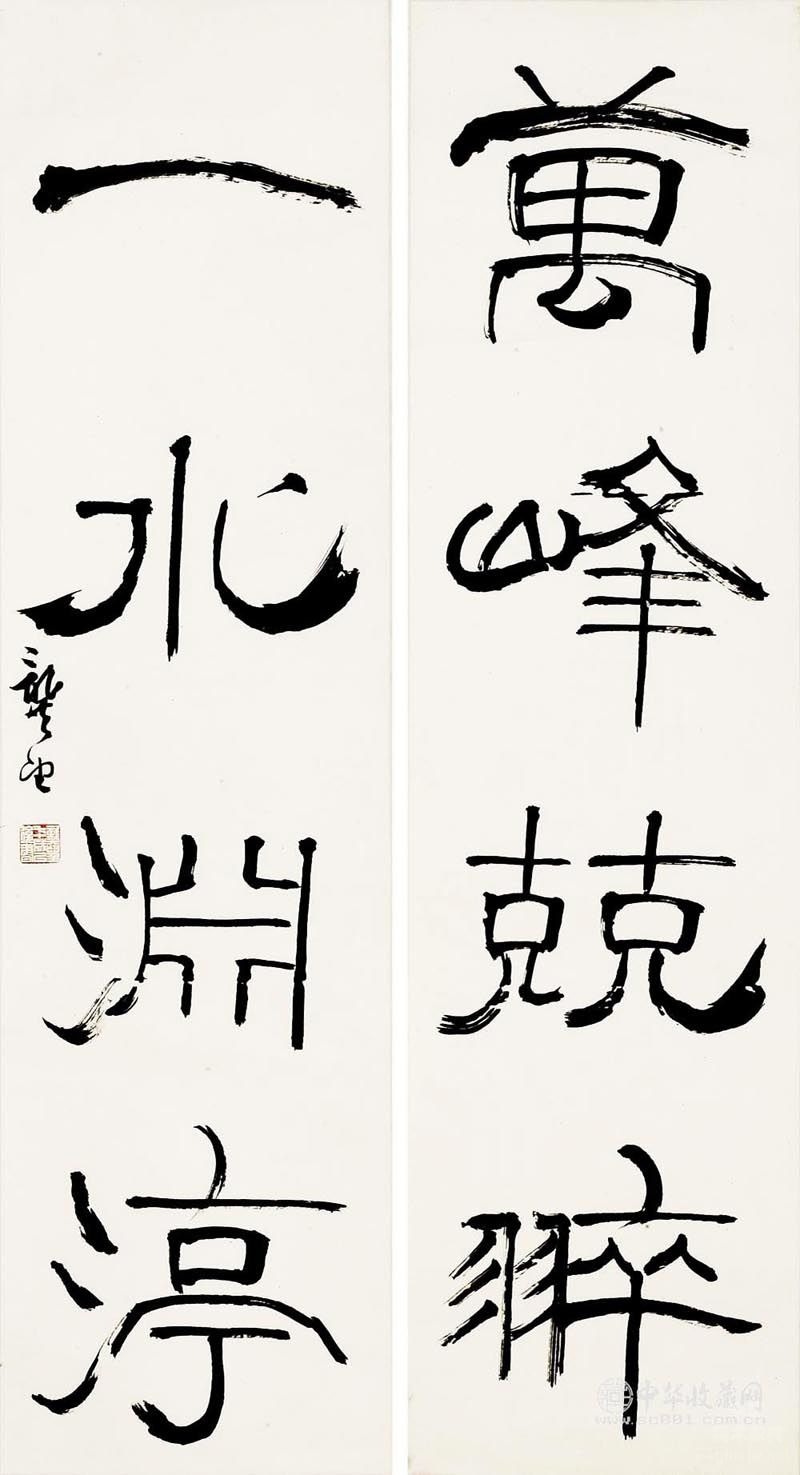 萬峰兢翠
一水淵渟
龔望
中华收藏网
www.sc001.com.cn